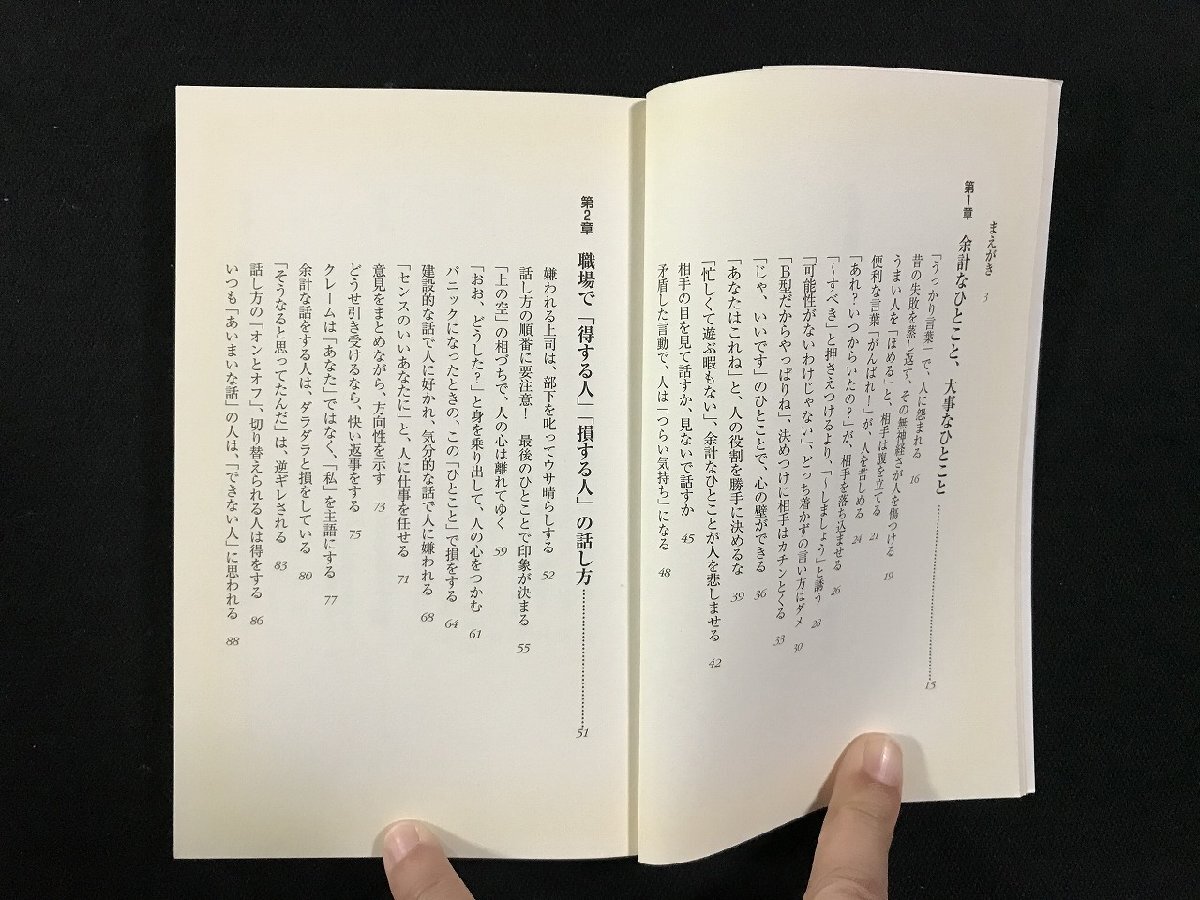 まえがき 3
第1章 余計なひとこと、大事なひとこと 15
「うっかり言葉」で、人に怨まれる 16
昔の失敗を蒸し返す、その無神経さが人を傷つける 19
うまい人を「ほめる」と、相手は腹を立てる 21
便利な言葉「がんばれ!」が、人を苦しめる 24
「あれ?いつからいたの?」が、相手を落ち込ませる 26
「〜すべき」と押さえつけるより、「〜しましょう」と誘う 28
「可能性がないわけじゃない」、どっち着かずの言い方はダメ 30
「B型だからやっぱりね」、決めつけに相手はカチンとくる 33
「じゃ、いいです」のひとことで、心の壁ができる 36
「あなたはこれね」と、人の役割を勝手に決めるな 39
「忙しくて遊ぶ暇もない」、余計なひとことが人を悲しませる 42
相手の目を見て話すか、見ないで話すか 45
矛盾した言動で、人は「つらい気持ち」になる 48
第2章 職場で「得する人」「損する人」の話し方 51
嫌われる上司は、部下を叱ってウサ晴らしする 52
話し方の順番に要注意! 最後のひとことで印象が決まる 55
「上の空」の相づちで、人の心は離れてゆく 59
「おお、どうした?」と身を乗り出して、人の心をつかむ 61
パニックになったときの、この「ひとこと」で損をする 64
建設的な話で人に好かれ、気分的な話で人に嫌われる 68
「センスのいいあなたに」と、人に仕事を任せる 71
意見をまとめながら、方向性を示す 73
どうせ引き受けるなら、快い返事をする 75
クレームは「あなた」ではなく、「私」を主語にする 77
余計な話をする人は、ダラダラと損をしている 80
「そうなると思ってたんだ」は、逆ギレされる 83
話し方の「オンとオフ」、切り替えられる人は得をする 86
いつも「あいまいな話」の人は、「できない人」に思われる 88